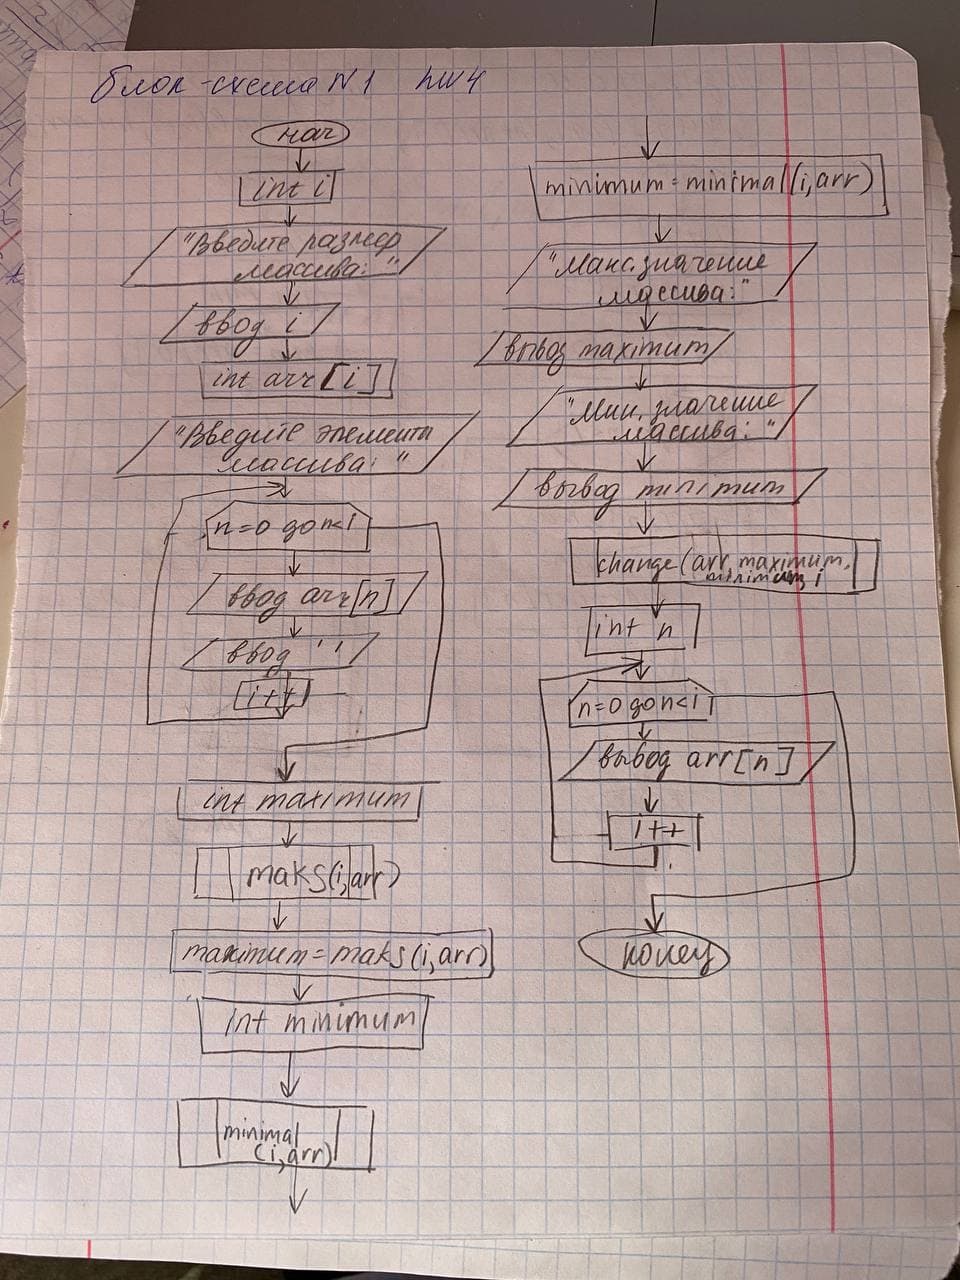 блок-схема N1 hw4
нач
int i
"Введите размер
массива: "
ввод i
int arr[i]
"Введите элементы
массива: "
n=0 до n<i
ввод arr[n]
ввод ' '
i++
int maximum
maks(i,arr)
maximum=maks(i,arr)
int minimum
minimal
(i,arr)
minimum=minimal(i,arr)
"Макс.значение
массива:"
вывод maximum
"Мин. значение
массива: "
вывод minimum
change(arr, maximum,
minimum, i
int n
n=0 до n<i
вывод arr[n]
i++
конец